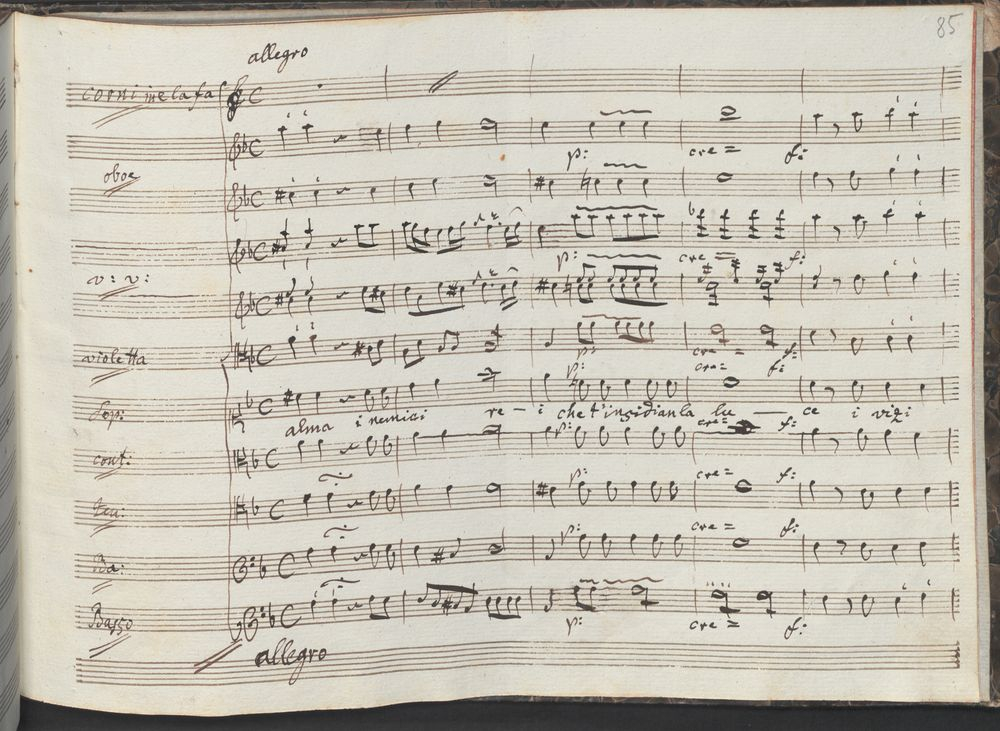 85
allegro
corni in elafa
oboe
p: cre= f:
v: v:
p: cre= f:
violetta
p: cre= f:
Sop:
p: cre= f:
alma i nemici re-i che t'insidian la lu—ce i vizi
cont:
p: cre= f:
Ten:
p: cre= f:
Ba:
p: cre= f:
Basso
p: cre= f:
allegro